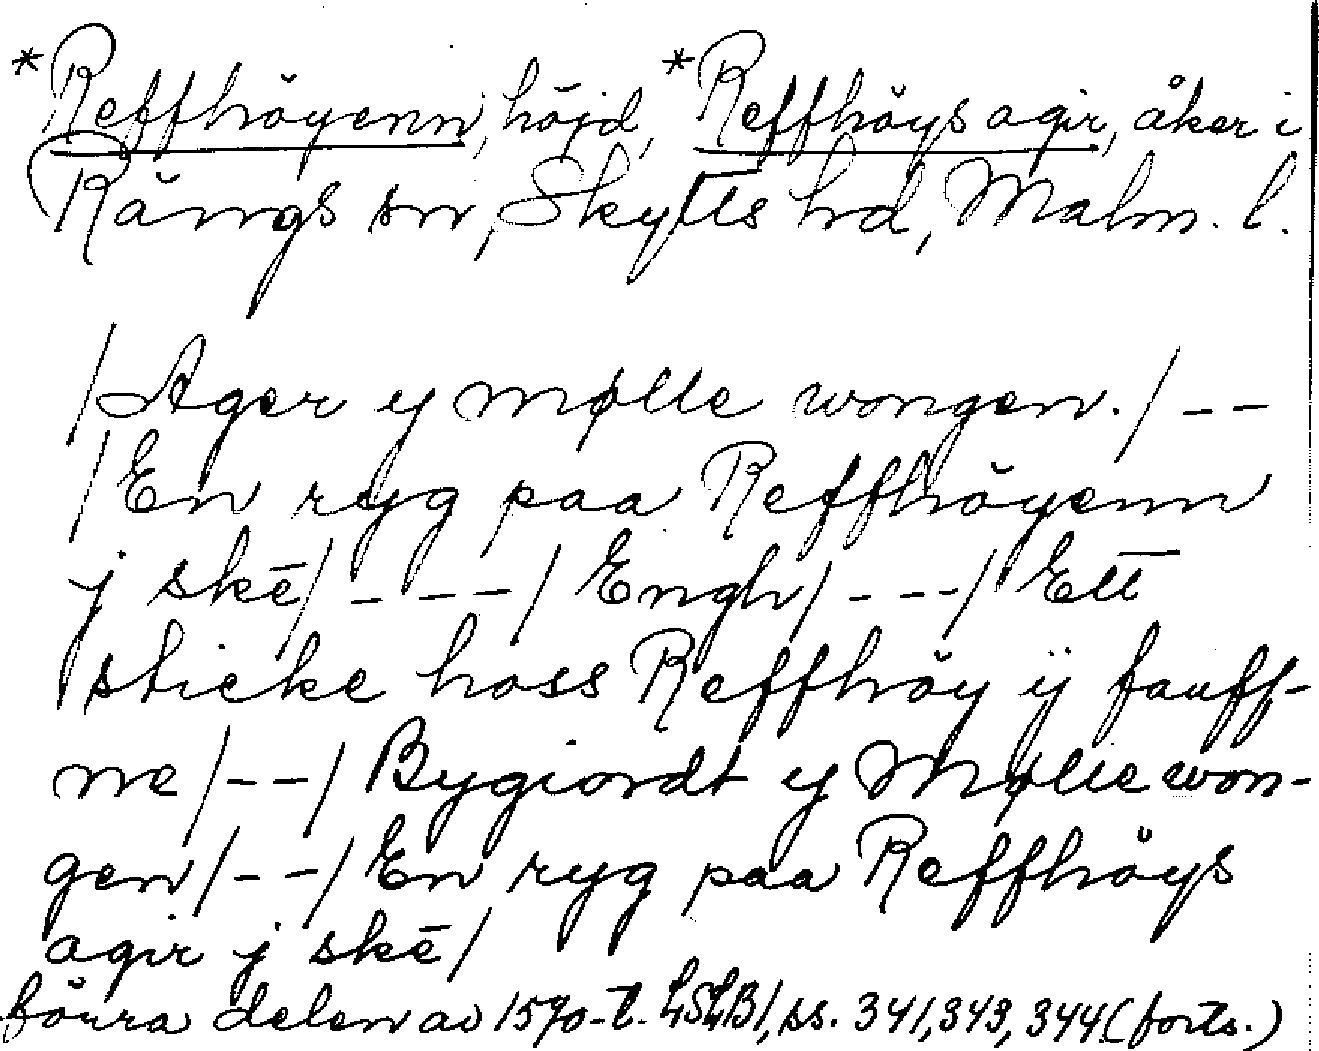 *Reffhöyenn, höjd, *Reffhöys agir, åker i
Rängs sn, Skytts hd, Malm. l.
/Ager y mølle wongen./--
/En ryg paa Reffhöyenn
j skē/---/Engh/---/Ett
sticke hoss Reffhöy ÿ fauff-
ne/--/Bygiordt y Mølle won-
gen/--/En ryg paa Reffhöys
agir j skē/
förra delen av 1570-t. LSLB1, ss. 341,343, 344 (forts.)